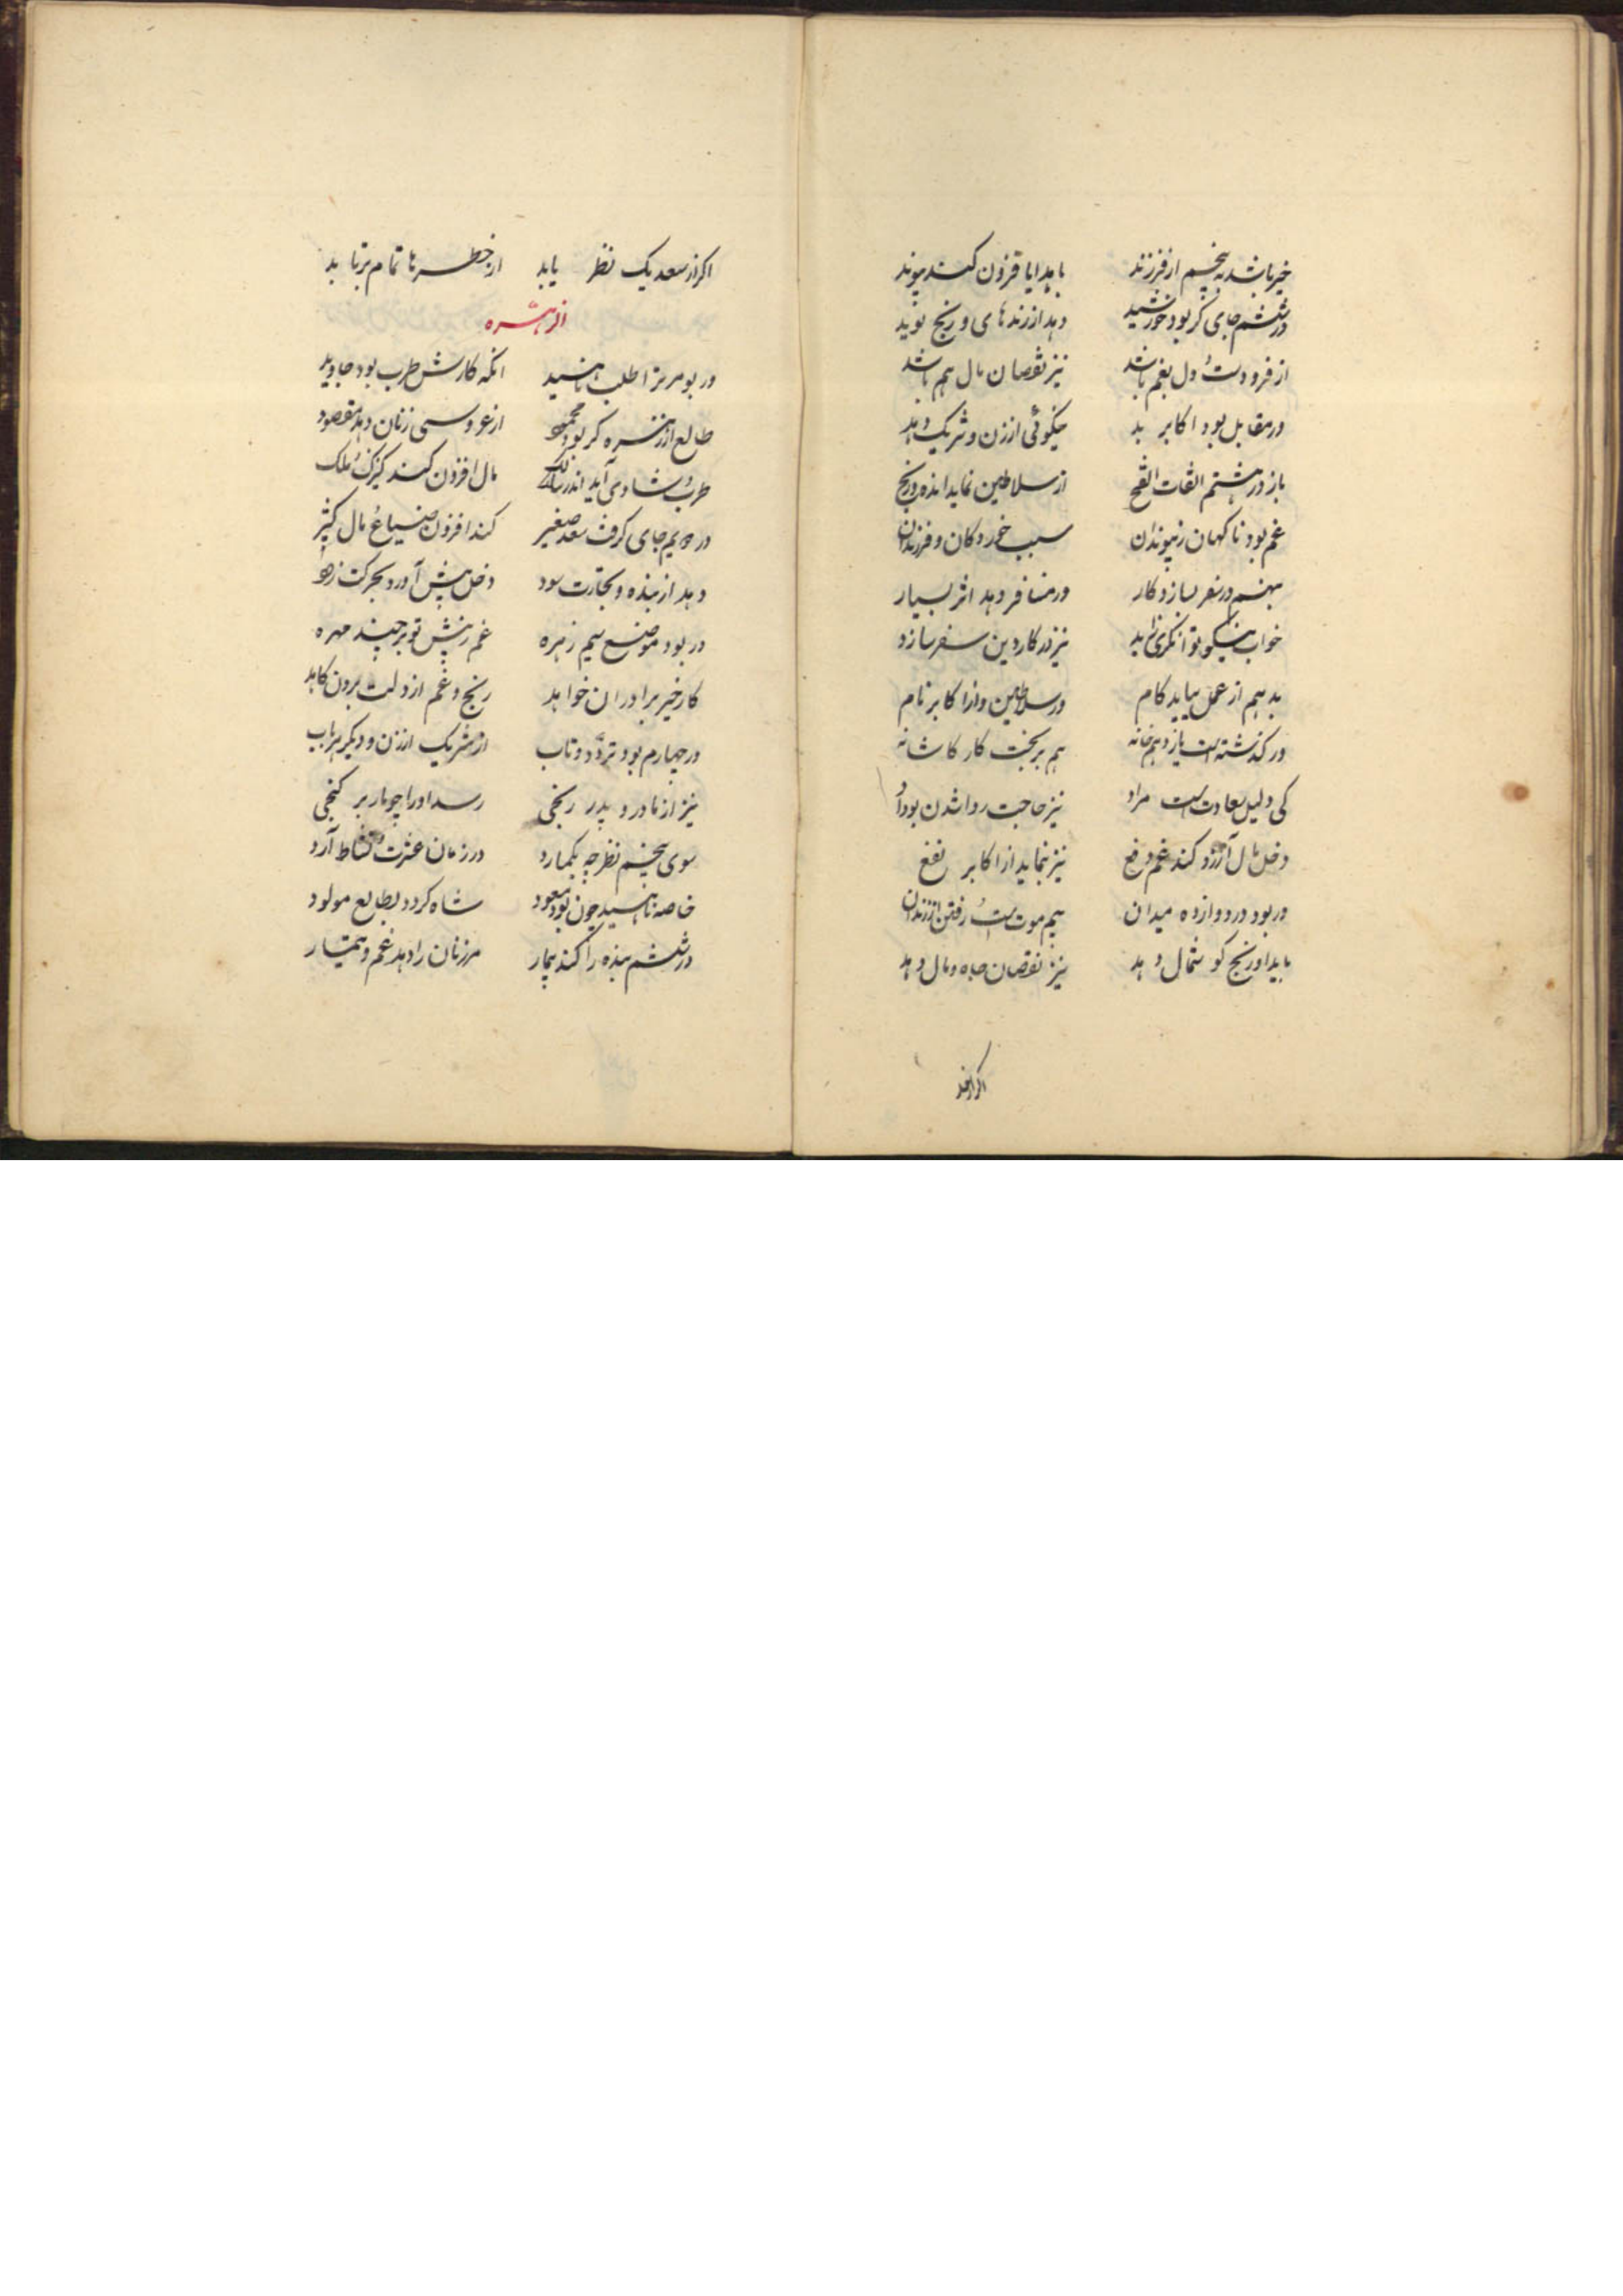 خیر باشد به پنجم از فرزند با هدایا فزون کند پیوند
در ششم جای گر بود خورشید دهد از زندهای و رنج نوید
از فرودست دل بغم باشد نیز نقصان مال هم باشد
در مقابل بود اکابر بد نیکوئی از زن و شریک دهد
باز در هشتم از سلاطین نماید انده و رنج
غم بود ناکهان ز پیوندان سبب خردکان و فرزندان
بنهم در سفر بسازد کار ور مسافر دهد اثر بسیار
خواب نیکو توانکری نیز در کار دین سفر سازد
بدهم از عمل بیابد کام ور سلاطین و از اکابر نام
ور کذشته است یازدهم خانه هم بر بخت کار کاشانه
کی دلیل سعادت است مراد نیز حاجت روا شدن بود
دخل مال آرزو کند غم دفع نیز نماید از اکابر نفع
ور بود در دوازده میدان بیم موت است رفتن از زندان
باید او رنج کو شمال دهد نیز نقصان جاه و مال دهد
اکر از سعد یک نظر یابد از خطرها تمام برتابد
از زهره
ور بود مر ترا طلب ناهید انکه کارش طرب بود جاوید
طالع از زهره کر بود محمود از عروسی زنان دهد مقصود
طرب و شادی آید اندر مال افزون کند کنیزک و ملک
در دویم جای کرفت سعد صغیر کند افزون ضیاع و مال کثیر
دهد از بنده و تجارت سود دخل پیش آورد بحرکت زود
ور بود موضع سیم زهره غم ز پیش تو برچیند مهره
کار خیر برادران خواهد رنج و غم از دلت برون کاهد
در چهارم بود تردد و تاب از شریک از زن و دیکر
نیز از مادر و پدر رنجی رسد او را چو مار بر کنجی
سوی پنجم نظر چه بکمارد در زمان عشرت و نشاط آرد
خاصه ناهید چون بود مسعود شاد کردد بطالع مولود
در ششم بنده را کند بیمار مر زنان را دهد غم و تیمار